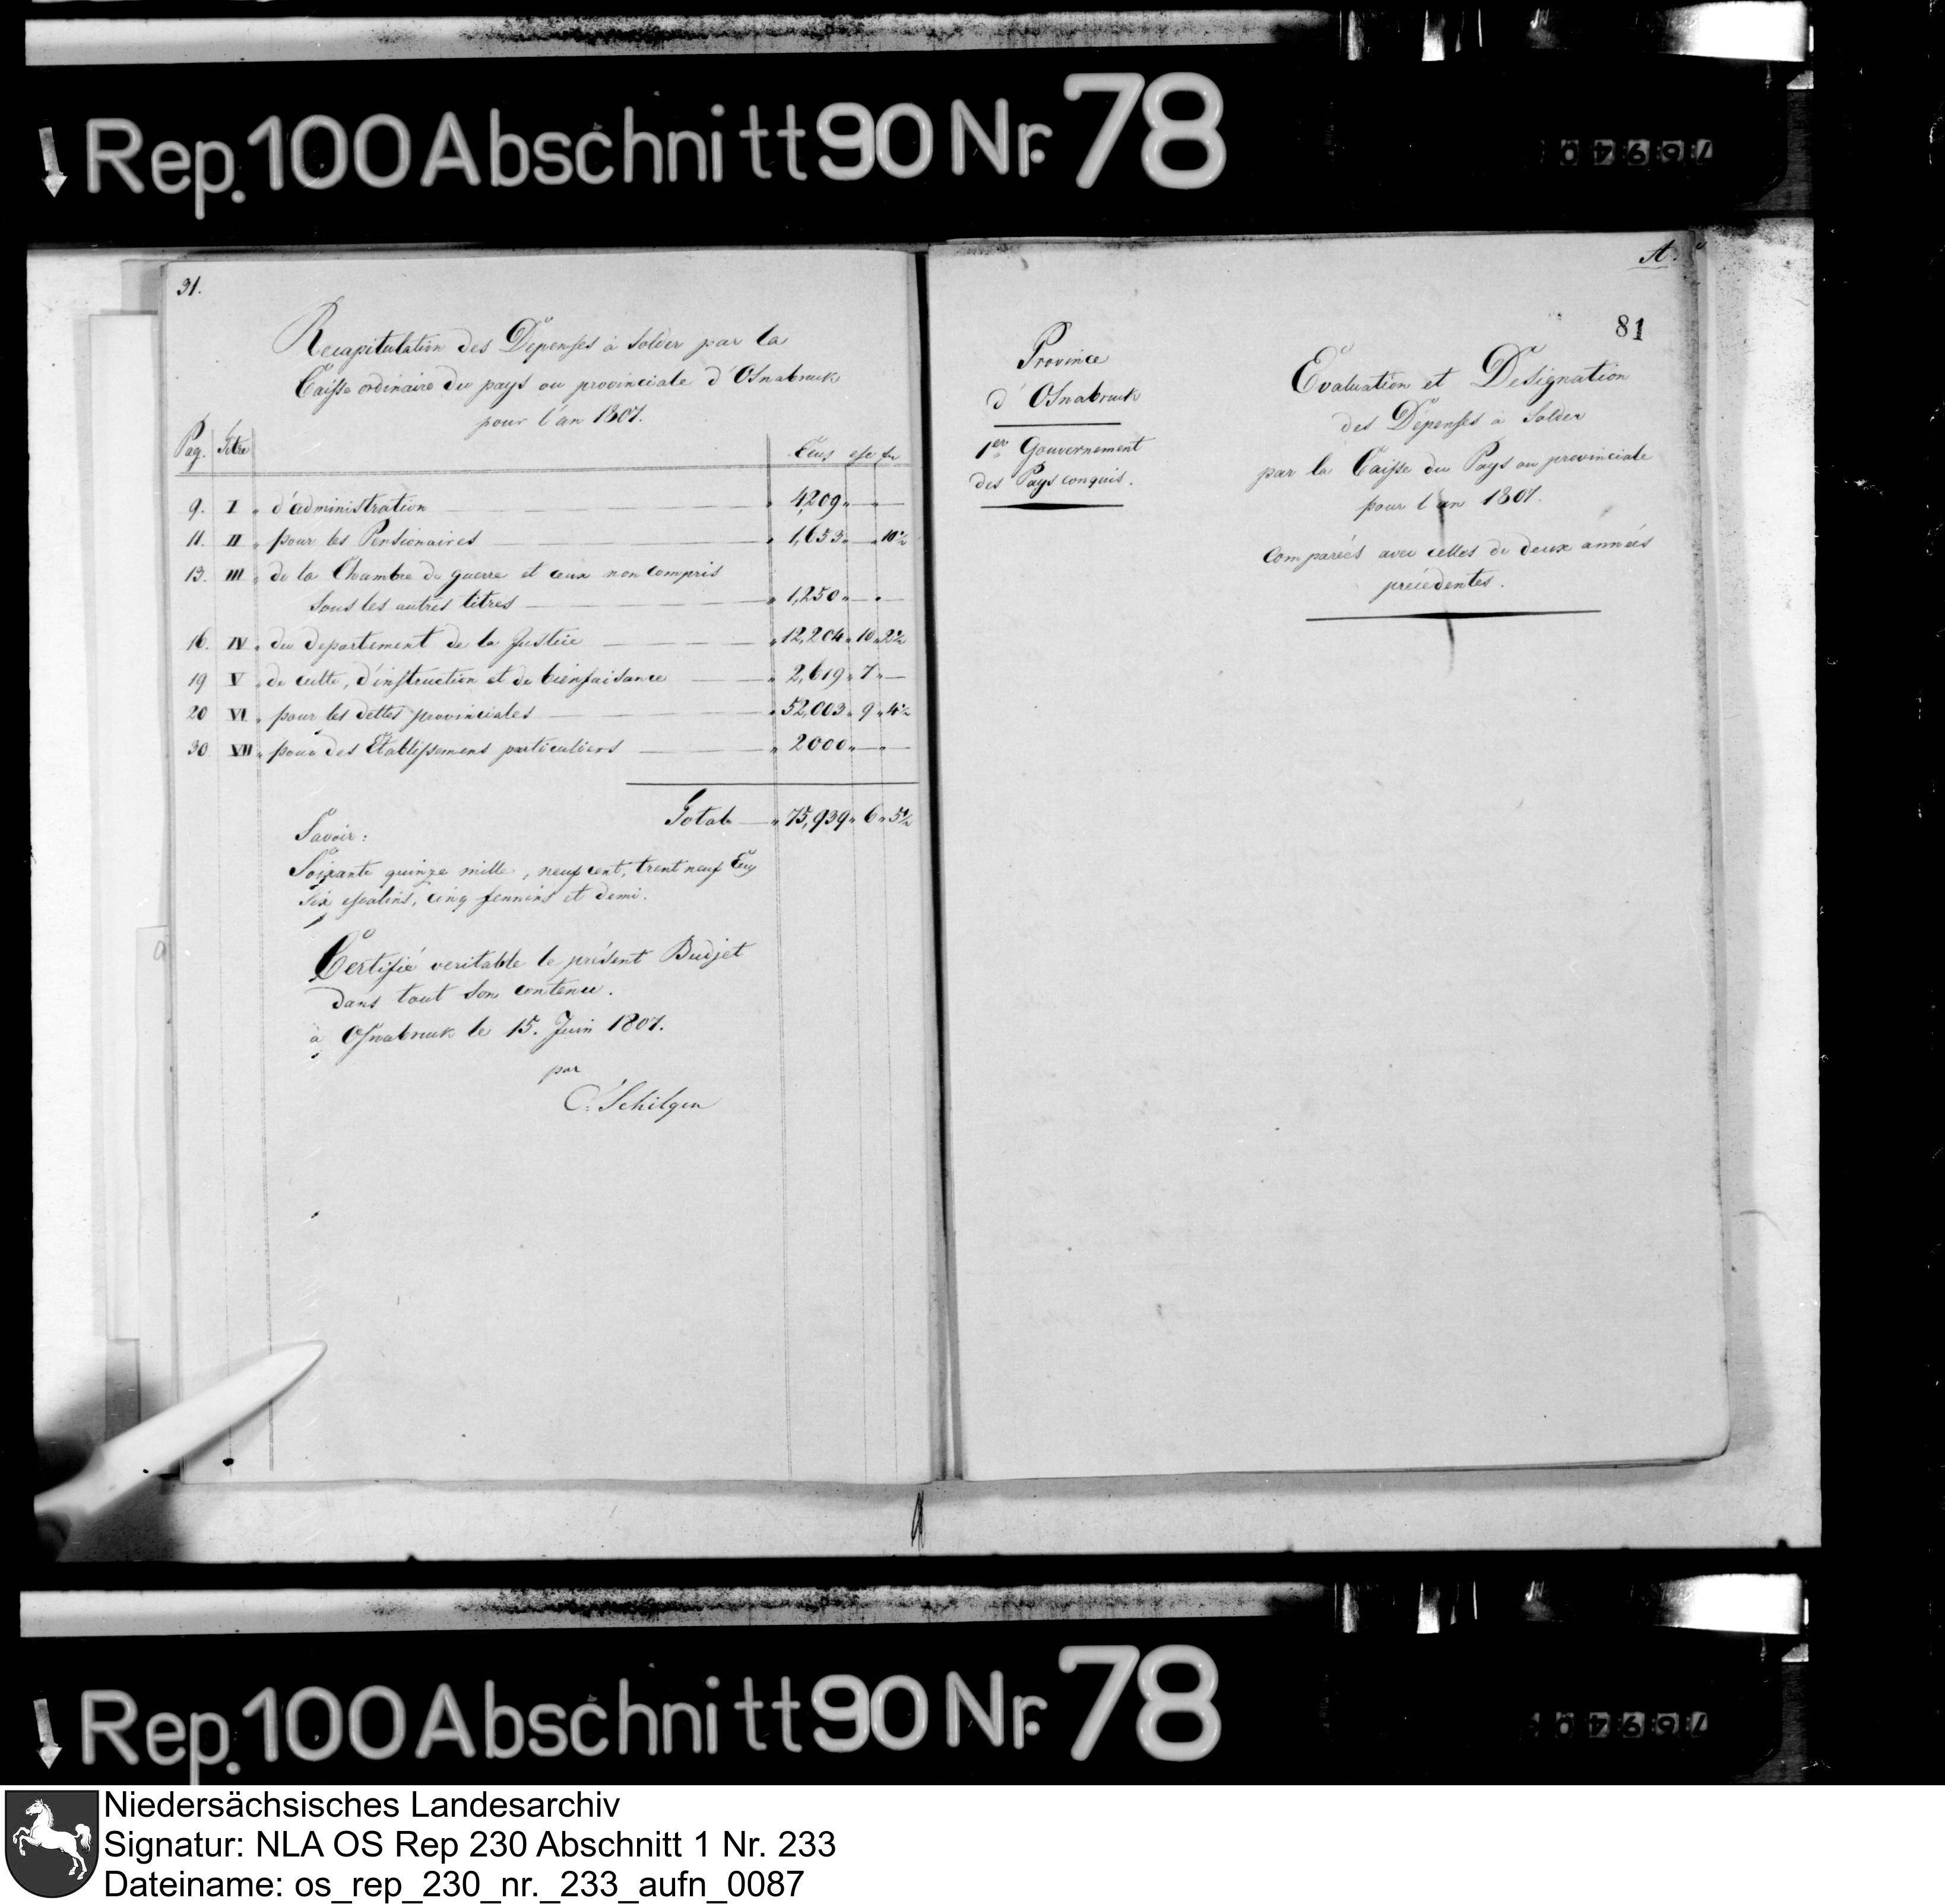 Rep. 100 Abschnitt 90 Nr. 78
31.
Recapitulation des Depenses à solder par la
Caisse ordinaire du pays ou provinciale d'Osnabruck
pour l'an 1807.
Pag. Titre Ecus esc fn
9. I " d'administration " 4,209 " — " —
11. II " pour les Pensionaires " 1,653 " — " 10½
13. III " de la Chambre de guerre et ceux non compris
sous les autres titres " 1,250 " — " —
16. IV " du departement de la Justice " 12,204 " 10 " 2½
19 V " de culte, d'instruction et de bienfaisance " 2,619 " 7 " —
20 VI " pour les dettes provinciales " 52,003 " 9 " 4½
30 VII " pour des Etablissemens particuliers " 2000 " — " —
Total — " 75,939 " 6 " 5½
Savoir:
Soixante quinze mille, neuf cent, trent neuf Ecus
six escalins, cinq fennins et demi.
Certifié veritable le présent Budjet
dans tout son contenu.
à Osnabruck le 15. Juin 1807.
par
C. Schilgen
A.
81
Province
d'Osnabruck
1er Gouvernement
des Pays conquis.
Evaluation et Designation
des Dépenses à Solder
par la Caisse du Pays ou provinciale
pour l'an 1807.
comparées avec celles de deux années
precedentes.
Rep. 100 Abschnitt 90 Nr. 78
Niedersächsisches Landesarchiv
Signatur: NLA OS Rep 230 Abschnitt 1 Nr. 233
Dateiname: os_rep_230_nr._233_aufn_0087